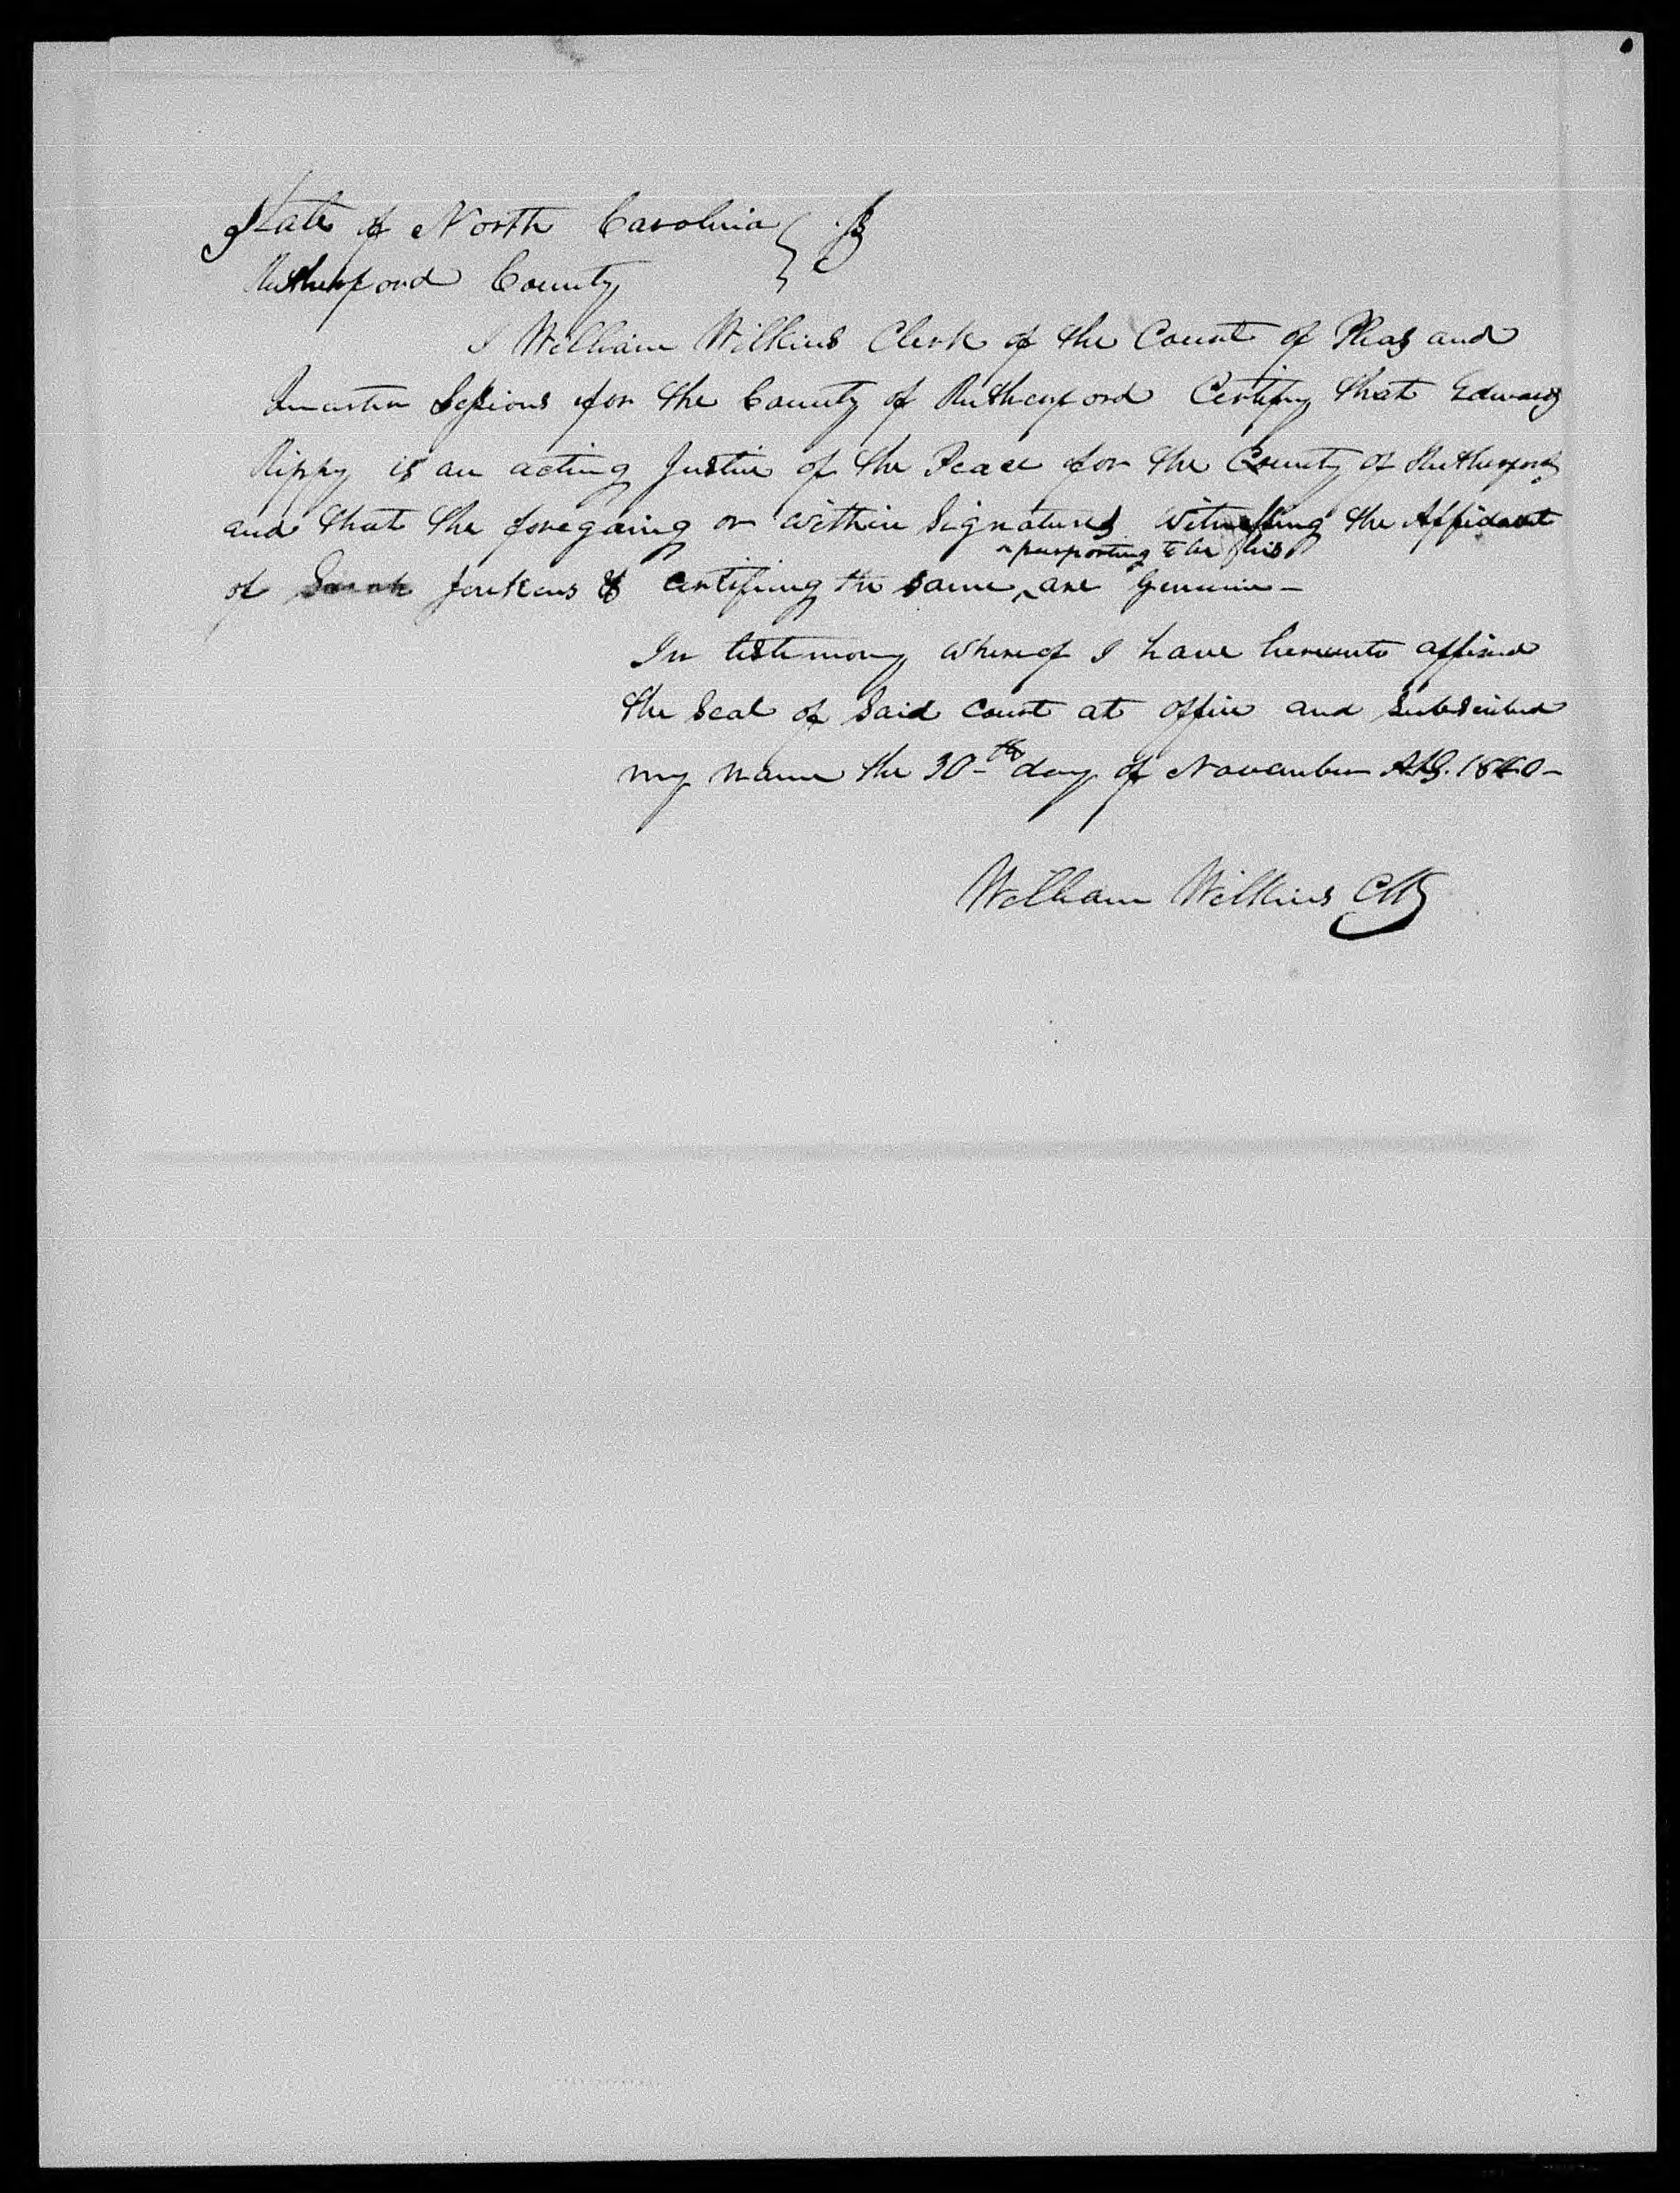 State of North Carolina } ss
Rutherford County
I William Wilkins Clerk of the Court of Pleas and
Quarter Sessions for the County of Rutherford Certify that Edward
Rippy is an acting Justice of the Peace for the County of Rutherford
and that the foregoing or within Signatures Witnessing the Affidavit
purporting to be his
of Sarah Jenkins & certifying the same ^ are Genuine —
In testimony whereof I have hereunto affixed
the Seal of Said Court at office and Subscribed
my name the 30th day of November A.D. 1840 —
William Wilkins Clk